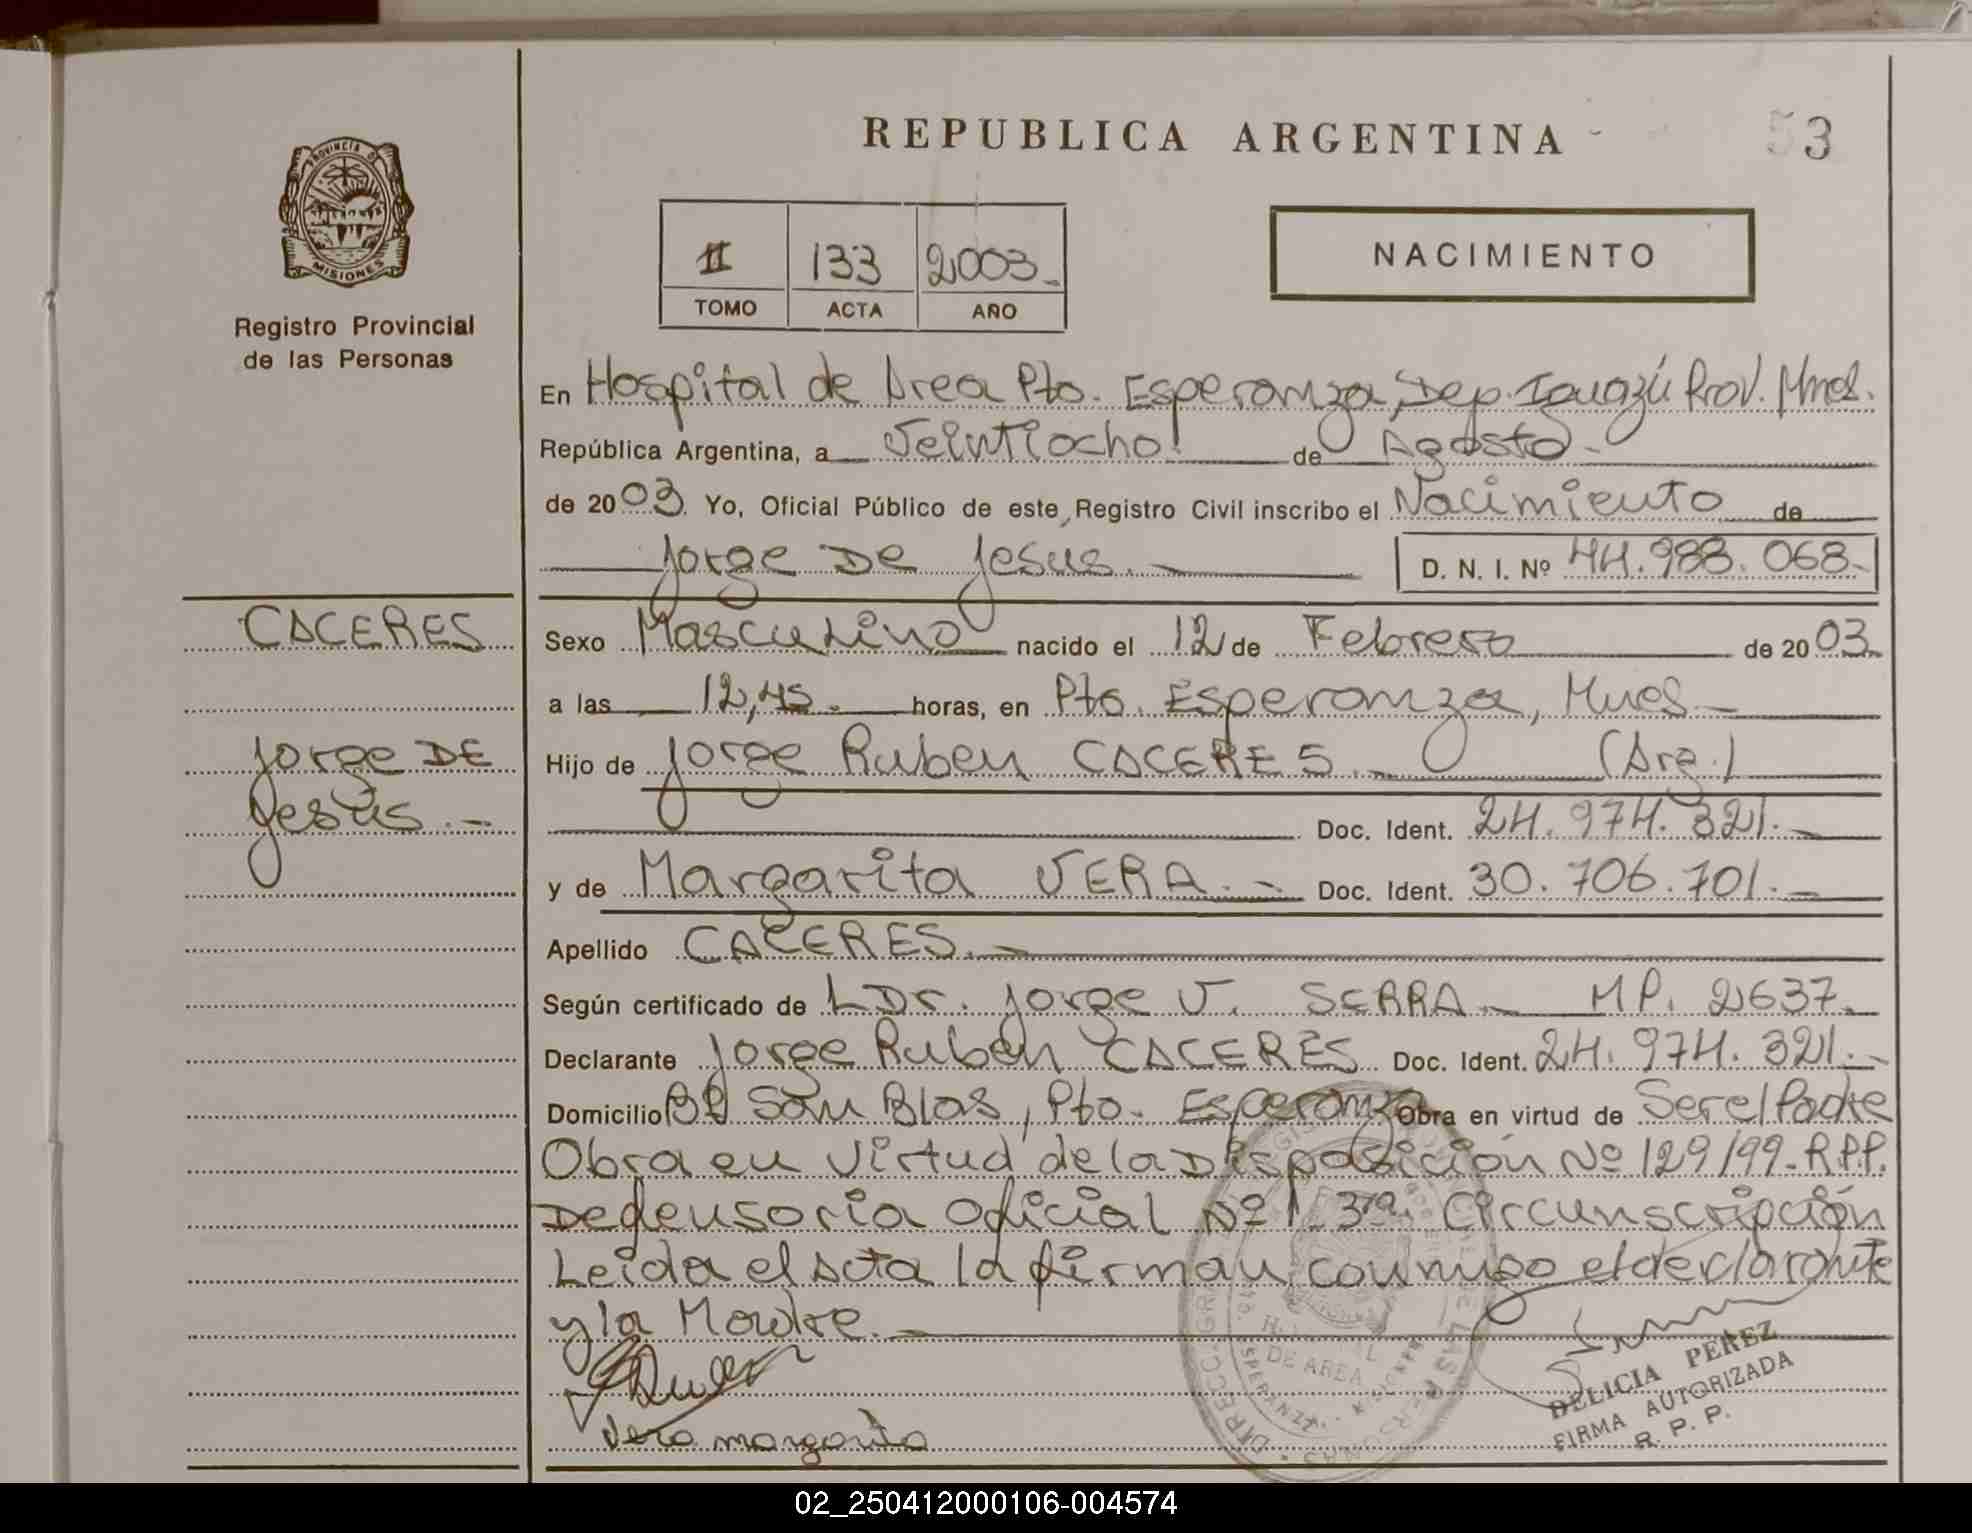 REPUBLICA ARGENTINA
53
PROVINCIA DE MISIONES
Registro Provincial
de las Personas
II 133 2003
TOMO ACTA AÑO
NACIMIENTO
En Hospital de Area Pto. Esperanza, Dep. Iguazú Prov. Mnes.
República Argentina, a Veintiocho de Agosto
de 2003 Yo, Oficial Público de este Registro Civil inscribo el Nacimiento de
Jorge De Jesús. D. N. I. Nº 44.988.068
CACERES
Jorge DE
Jesús.
Sexo Masculino nacido el 12 de Febrero de 2003
a las 12,45. horas, en Pto. Esperanza, Mnes
Hijo de Jorge Ruben CACERES. (Arg.)
Doc. Ident. 24.974.321.
y de Margarita VERA. Doc. Ident. 30.706.701.
Apellido CACERES.
Según certificado de Dr. Jorge V. SERRA M P. 2637.
Declarante Jorge Ruben CACERES Doc. Ident. 24.974.321.
Domicilio Bº San Blas, Pto. Esperanza Obra en virtud de Ser el Padre
Obra en virtud de la Disposición Nº 129/99-R.P.P.
Defensoria Oficial Nº 1 3ra. Circunscripción
Leida el Acta la firman conmigo el declarante
y la Madre.
Vera margarita
DELICIA PEREZ
FIRMA AUTORIZADA
R. P. P.
02_250412000106-004574